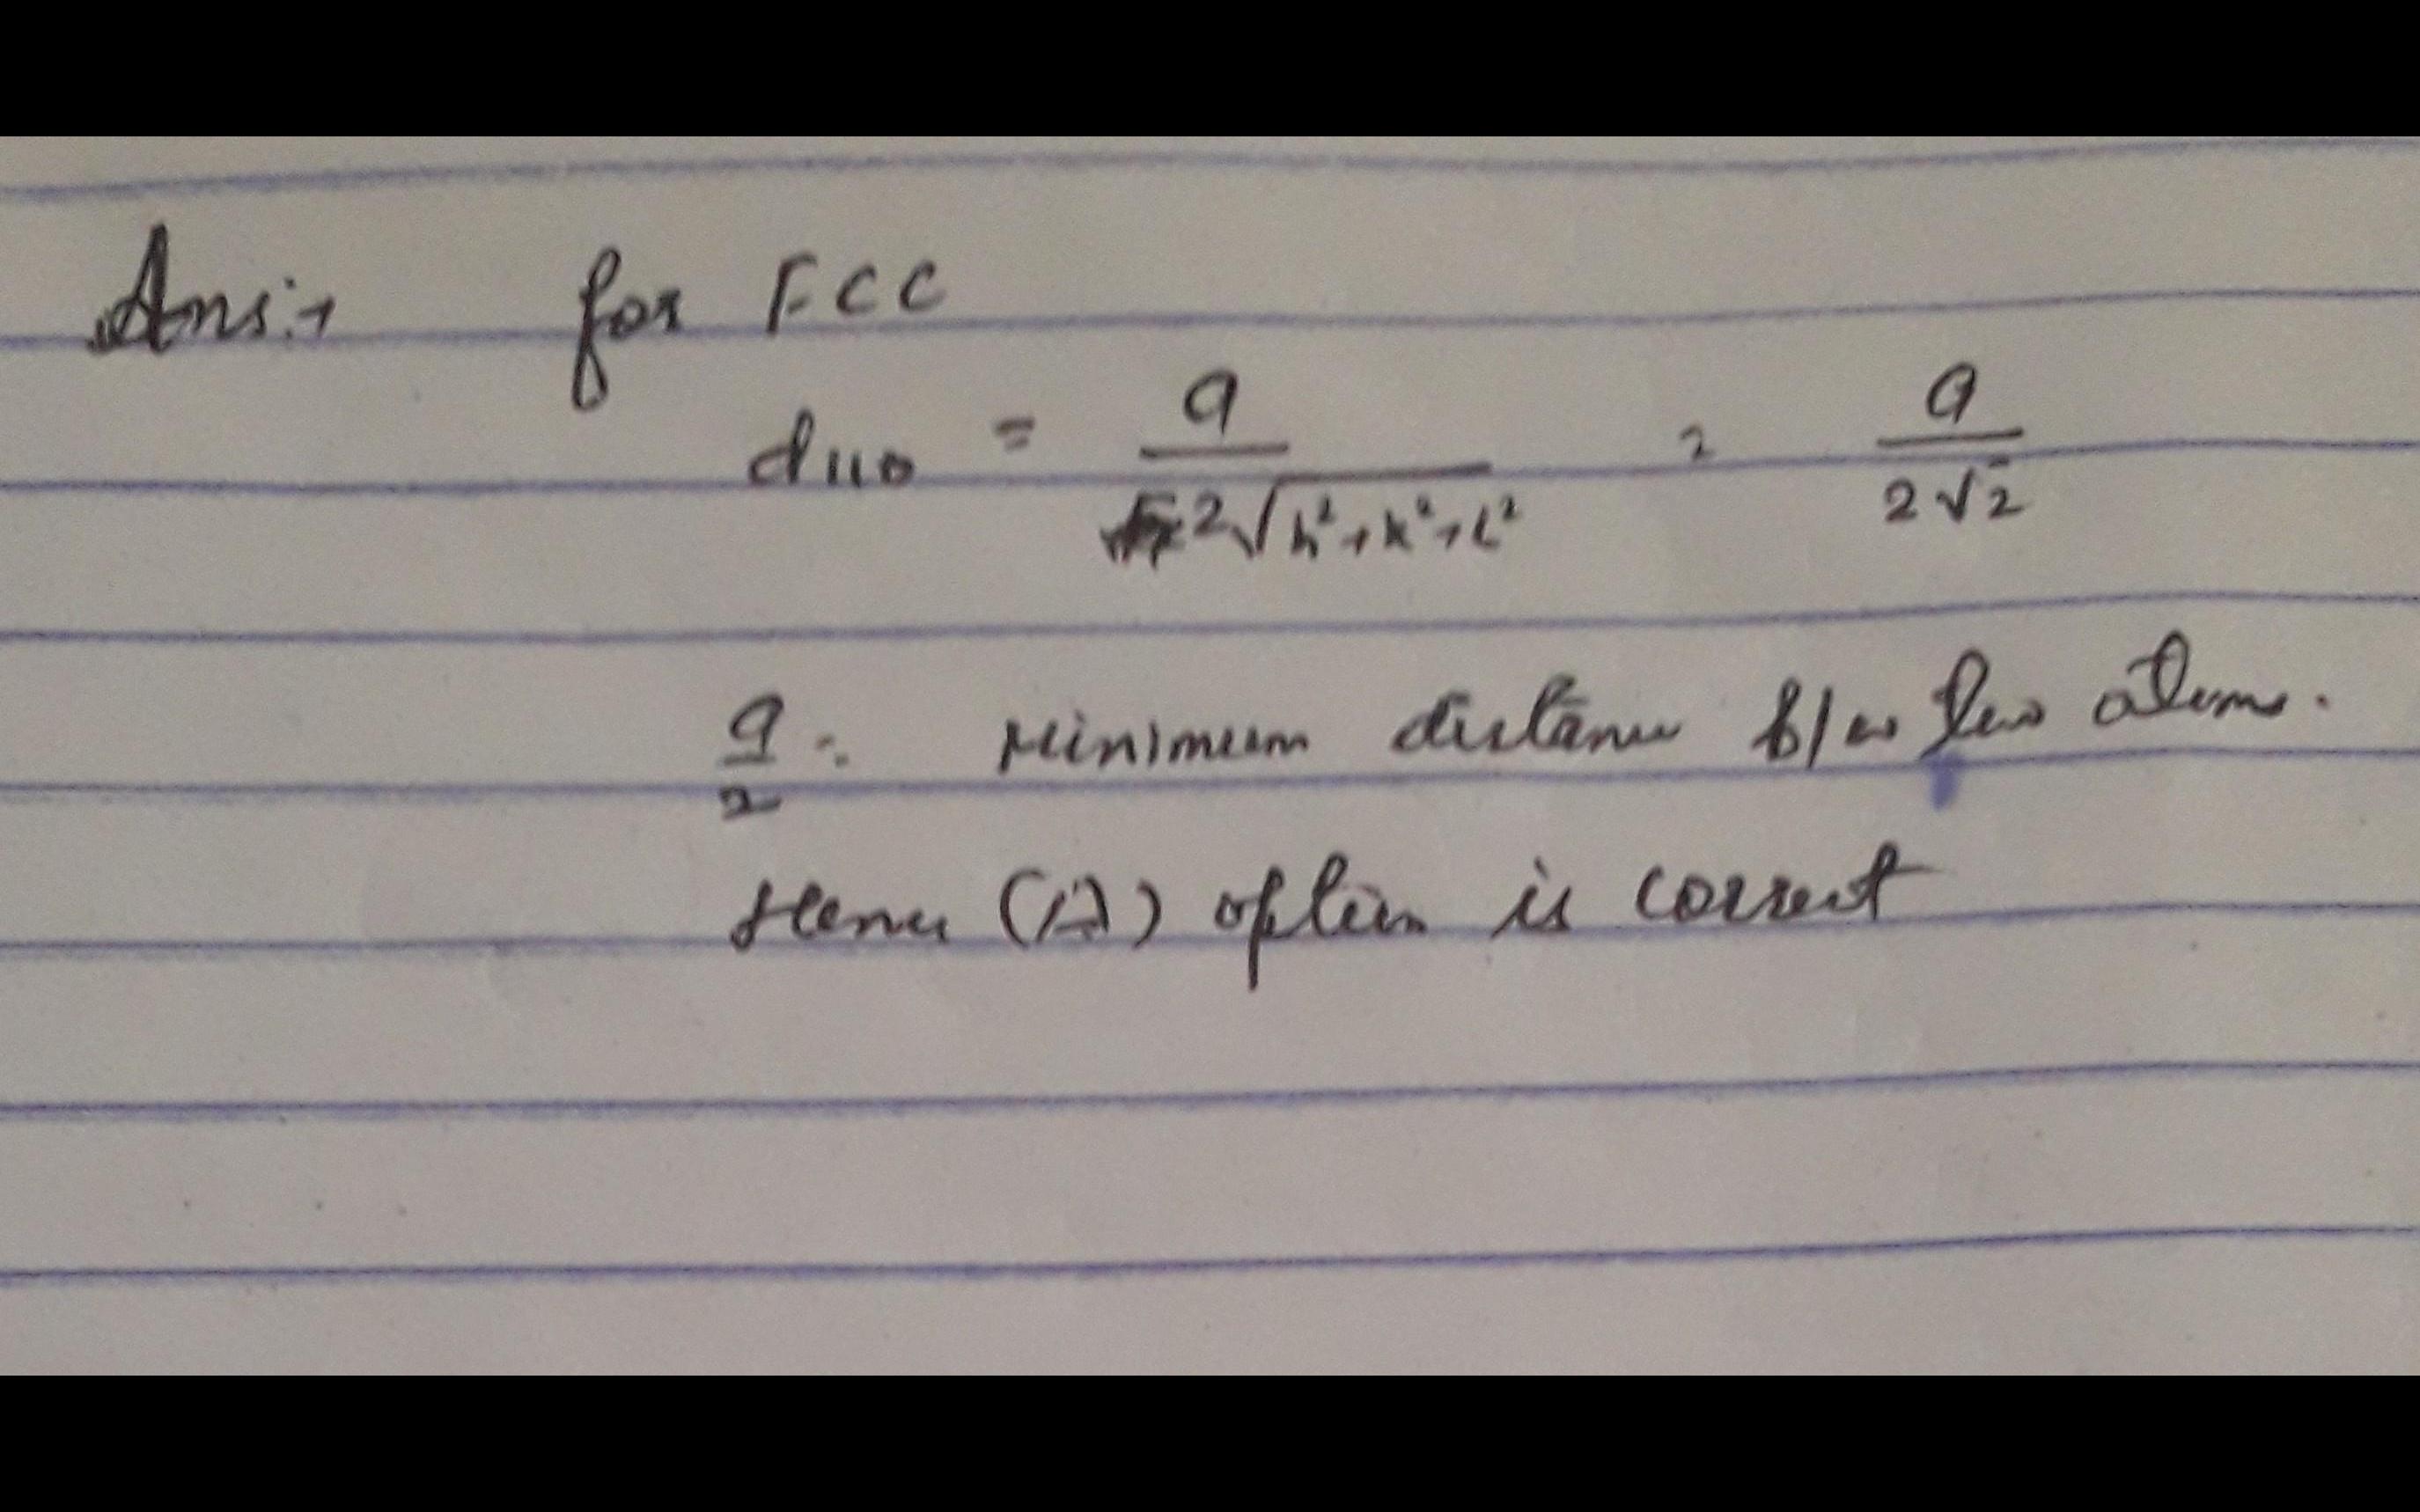 Ans:→ for FCC
d110 = a / 2√h²+k²+l² = a / 2√2
a/2 = Minimum distance b/w two atoms.
Hence (A) option is correct